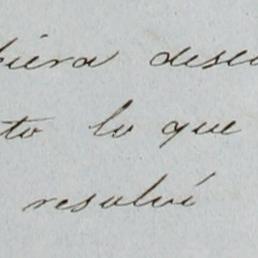 piera dese
to lo que
resolví